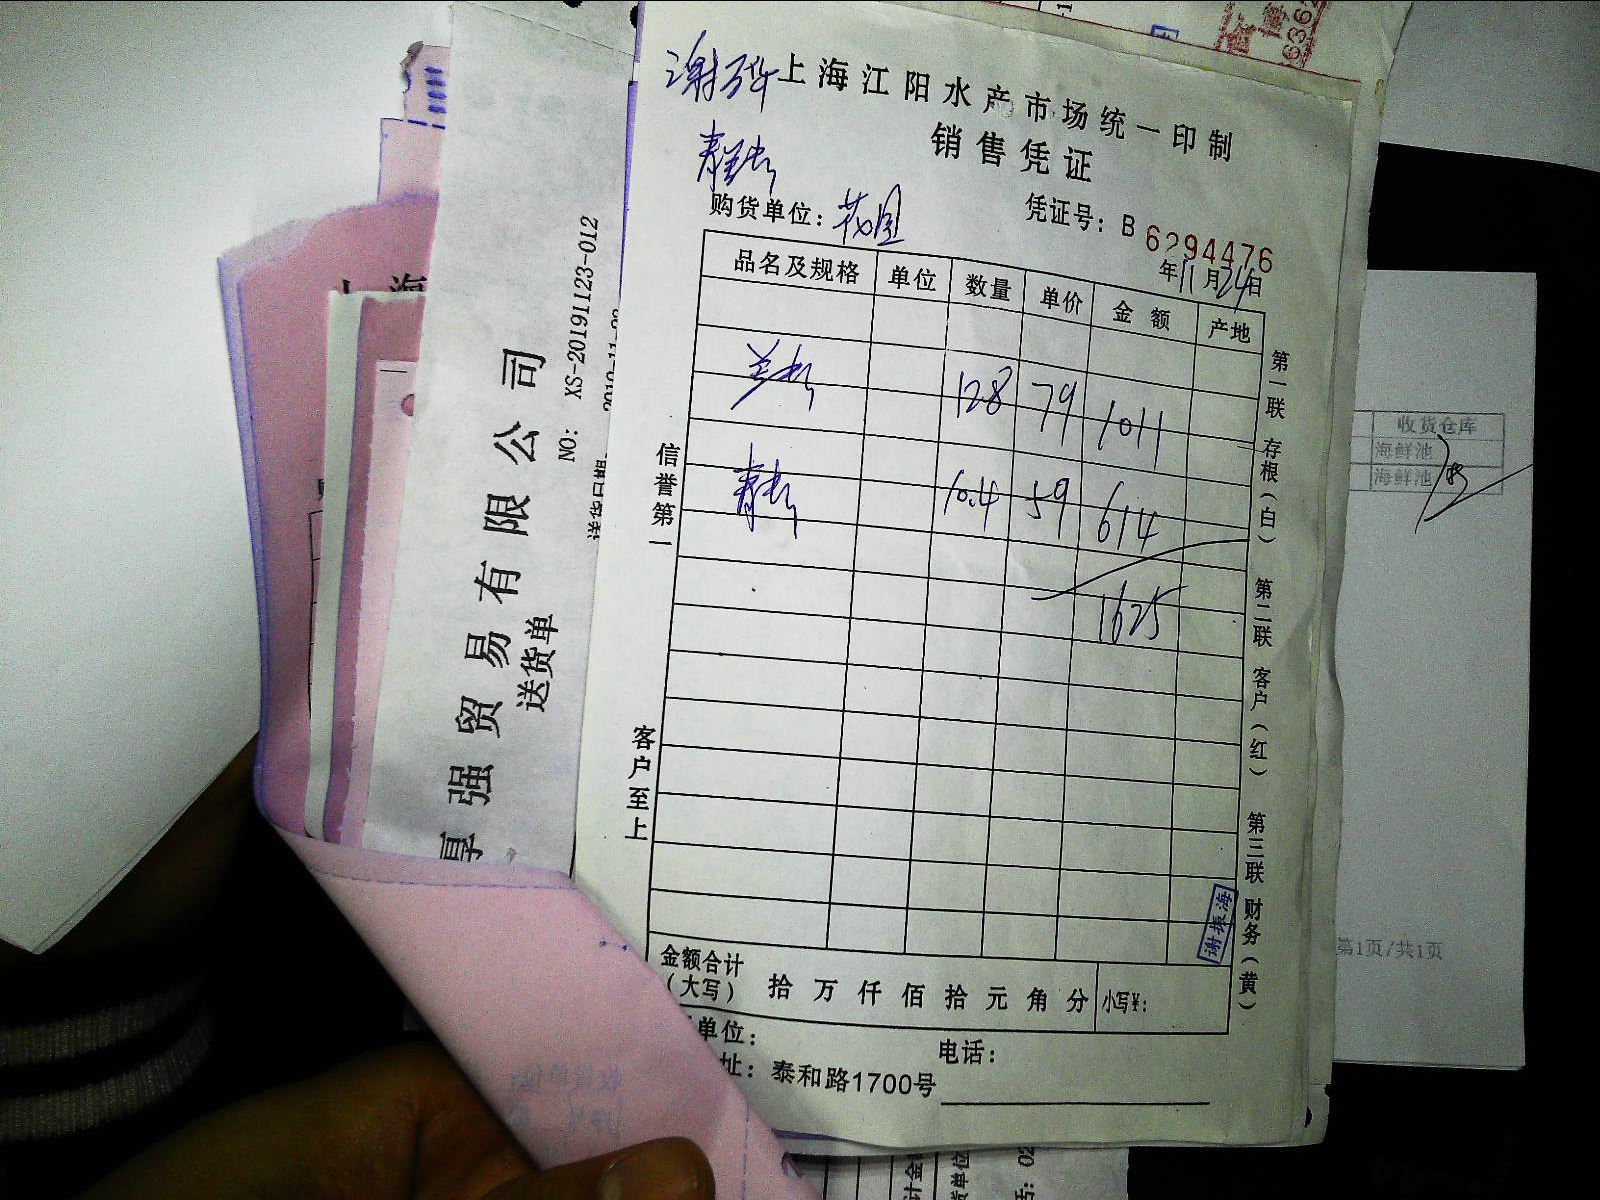 上海江阳水产市场统一印制
销售凭证
购货单位：花园
凭证号：B 6294476
年11月24日
品名及规格 单位 数量 单价 金额 产地
128 79 1011
10.4 59 614
1625
信誉第一
客户至上
第一联 存根（白） 第二联 客户（红） 第三联 财务（黄）
谢振海
金额合计
（大写） 拾 万 仟 佰 拾 元 角 分 小写¥：
单位：
电话：
址：泰和路1700号
强贸易有限公司
送货单
NO: XS-20191123-012
送货日期
上海
收货仓库
海鲜池
海鲜池
第1页/共1页